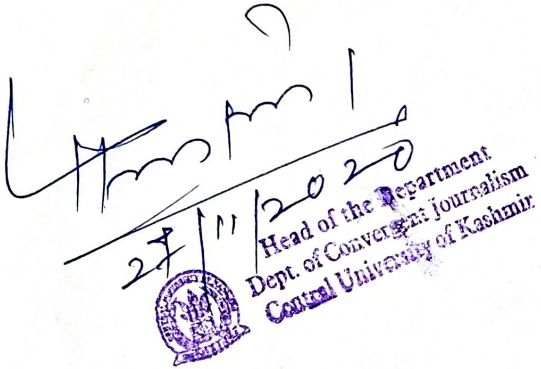 27/11/2020
Head of the Department
Dept. of Convergent Journalism
Central University of Kashmir